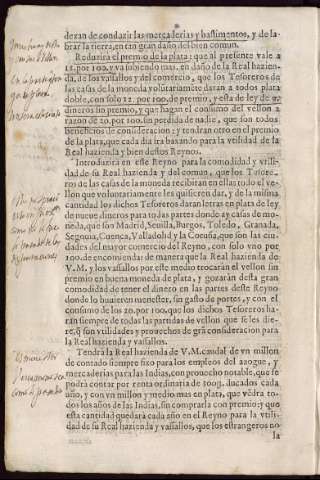 deran de conduzir las mercaderias y bastimentos, y de la-
brar la tierra, en tan gran daño del bien comun.
Reduzirà el premio de la plata: que al presente vale a
15. por 100. y va subiendo mas. en daño de la Real hazien-
da, de los vassallos y del comercio, que los Tesoreros de
las casas de la moneda voluntariamẽte daran a todos plata
doble, con solo 12. por 100. de premio, y esta de ley de
dineros sin premio, y que hagan el consumo del vellon a
razon de 20. por 100. sin perdida de nadie, que son todos
beneficios de consideracion: y tendran otro en el premio
de la plata, que cada dia ira baxando para la vtilidad de la
Real hazienda y bien destos Reynos.
Introduzirà en este Reyno para la comodidad y vtili-
dad de su Real hazienda y del comun, que los Tesore-
ros de las casas de la moneda recibiran en ellas todo el ve-
llon que voluntariamente les quisieren dar, y de la misma
cantidad los dichos Tesoreros daran letras en plata de ley
de nueue dineros para todas partes donde ay casas de mo-
neda, que son Madrid, Seuilla, Burgos, Toledo, Granada,
Segouia, Cuenca, Valladolid y la Coruña, que son las ciu-
dades del mayor comercio del Reyno, con solo vno por
100. de encomienda: de manera que la Real hazienda de
V. M. y los vassallos por este medio trocaràn el vellon sin
premio en buena moneda de plata, y gozaràn desta gran
comodidad de tener el dinero en las partes deste Reyno
donde lo huuieren menester, sin gasto de portes, y con el
consumo de los 20. por 100. que los dichos Tesoreros ha-
ràn siempre de todas las partidas de vellon que se les die-
re, que son vtilidades y prouechos de grã consideracion para
la Real hazienda y vassallos.
Tendrà la Real hazienda de V. M. caudal de vn millon
de contado siempre fixo para los empleos del azogue, y
mercaderias para las Indias, con prouecho notable, que se
podrà contar por renta ordinaria de ducados cada
año, y con vn millon y medio mas en plata, que vẽdra to-
dos los años de las Indias, sin comprarla con premio: y que
esta cantidad quedarà cada año en el Reyno para la vtili-
dad de su Real hazienda y vassallos, que los estrangeros no
la